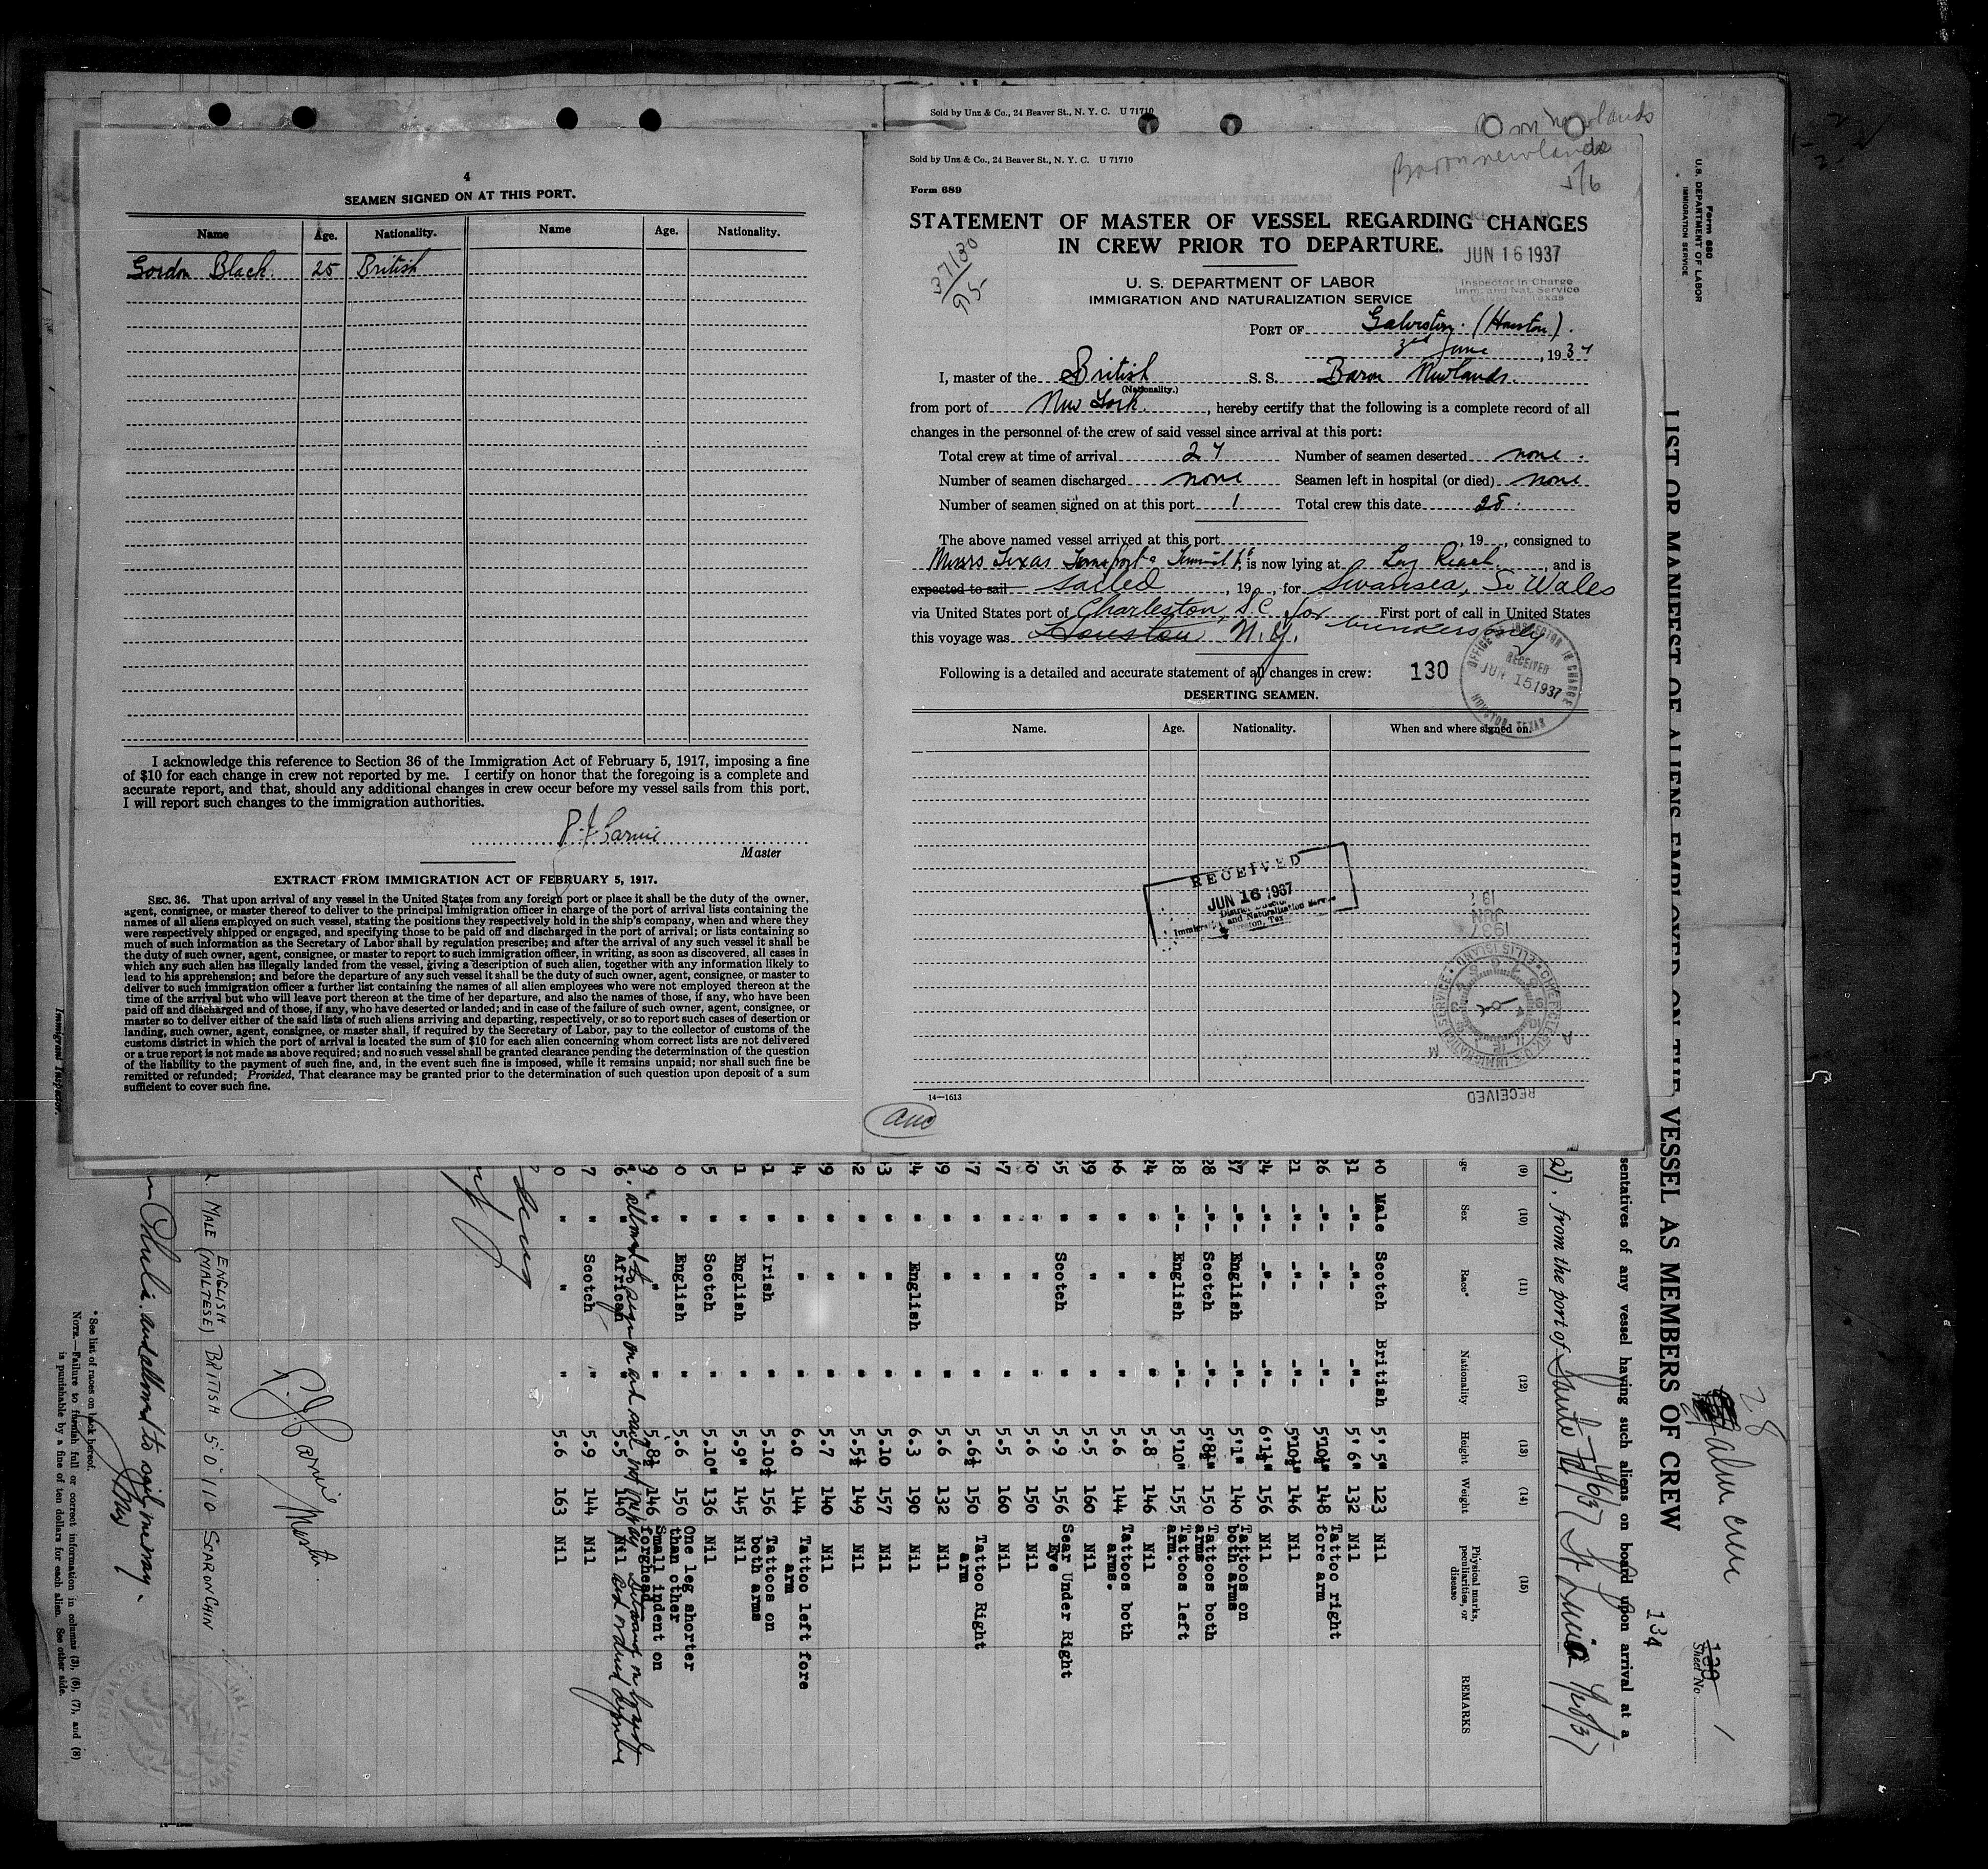 4
SEAMEN SIGNED ON AT THIS PORT.
Name Age. Nationality. Name Age. Nationality.
Gordon Black. 25 British
I acknowledge this reference to Section 36 of the Immigration Act of February 5, 1917, imposing a fine
of $10 for each change in crew not reported by me. I certify on honor that the foregoing is a complete and
accurate report, and that, should any additional changes in crew occur before my vessel sails from this port,
I will report such changes to the immigration authorities.
Master
EXTRACT FROM IMMIGRATION ACT OF FEBRUARY 5, 1917.
SEC. 36. That upon arrival of any vessel in the United States from any foreign port or place it shall be the duty of the owner,
agent, consignee, or master thereof to deliver to the principal immigration officer in charge of the port of arrival lists containing the
names of all aliens employed on such vessel, stating the positions they respectively hold in the ship's company, when and where they
were respectively shipped or engaged, and specifying those to be paid off and discharged in the port of arrival; or lists containing so
much of such information as the Secretary of Labor shall by regulation prescribe; and after the arrival of any such vessel it shall be
the duty of such owner, agent, consignee, or master to report to such immigration officer, in writing, as soon as discovered, all cases in
which any such alien has illegally landed from the vessel, giving a description of such alien, together with any information likely to
lead to his apprehension; and before the departure of any such vessel it shall be the duty of such owner, agent, consignee, or master to
deliver to such immigration officer a further list containing the names of all alien employees who were not employed thereon at the
time of the arrival but who will leave port thereon at the time of her departure, and also the names of those, if any, who have been
paid off and discharged and of those, if any, who have deserted or landed; and in case of the failure of such owner, agent, consignee, or
master so to deliver either of the said lists of such aliens arriving and departing, respectively, or so to report such cases of desertion or
landing, such owner, agent, consignee, or master shall, if required by the Secretary of Labor, pay to the collector of customs of the
customs district in which the port of arrival is located the sum of $10 for each alien concerning whom correct lists are not delivered
or a true report is not made as above required; and no such vessel shall be granted clearance pending the determination of the question
of the liability to the payment of such fine, and, in the event such fine is imposed, while it remains unpaid; nor shall such fine be
remitted or refunded; Provided, That clearance may be granted prior to the determination of such question upon deposit of a sum
sufficient to cover such fine.
Immigrant Inspector.
Sold by Unz & Co., 24 Beaver St., N. Y. C. U 71710
Sold by Unz & Co., 24 Beaver St., N. Y. C. U 71710
Baron newlands
Form 689
STATEMENT OF MASTER OF VESSEL REGARDING CHANGES
IN CREW PRIOR TO DEPARTURE.
JUN 16 1937
37130
95
U. S. DEPARTMENT OF LABOR
IMMIGRATION AND NATURALIZATION SERVICE
Inspector in Charge
Imm. and Nat. Service
Texas
PORT OF Galveston. (Houston).
3rd June, 1937
I, master of the British S. S. Baron Newlands.
(Nationality.)
from port of New York., hereby certify that the following is a complete record of all
changes in the personnel of the crew of said vessel since arrival at this port:
Total crew at time of arrival 27 Number of seamen deserted none.
Number of seamen discharged none Seamen left in hospital (or died) none
Number of seamen signed on at this port 1 Total crew this date 28.
The above named vessel arrived at this port , 19 , consigned to
Messrs Texas Transport & is now lying at Long Reach, and is
expected to sail sailed , 19 , for Swansea, So Wales
via United States port of Charleston, S.C. for bunkers only First port of call in United States
this voyage was Houston N.Y.
Following is a detailed and accurate statement of all changes in crew: 130
OFFICE OF INSPECTOR IN CHARGE
RECEIVED
JUN 15 1937
HOUSTON, TEXAS
DESERTING SEAMEN.
Name. Age. Nationality. When and where signed on.
RECEIVED
JUN 16 1937
14—1613
RECEIVED
Form 680
U.S. DEPARTMENT OF LABOR
IMMIGRATION SERVICE
LIST OR MANIFEST OF ALIENS EMPLOYED ON THE VESSEL AS MEMBERS OF CREW
28
Alien crew
Sheet No. 1
130
134
sentatives of any vessel having such aliens on board upon arrival at a
, from the port of St Lucia
(9) (10) (11) (12) (13) (14) (15)
Sex Race* Nationality Height Weight Physical marks, peculiarities, or disease REMARKS
40 Male Scotch British 5' 5" 123 Nil
31 -"- -"- -"- 5' 6" 132 Nil
26 -"- -"- -"- 5'10½" 148 Tattoo right fore arm
21 -"- -"- -"- 5'10½" 146 Nil
24 -"- -"- -"- 6'1½" 156 Nil
37 -"- English -"- 5'1" 140 Tattoos on both arms
28 -"- Scotch -"- 5'8½" 150 Tattoos both arms
28 -"- English -"- 5'10" 155 Tattoos left arm.
24 " " " 5.8 146 Nil
46 " " " 5.6 144 Tattoos both arms.
39 " " " 5.5 160 Nil
55 " Scotch " 5.9 156 Scar Under Right Eye
0 " " " 5.6 150 Nil
7 " " " 5.5 160 Nil
7 " " " 5.6½ 150 Tattoo Right arm
39 " " " 5.6 132 Nil
4 " English " 6.3 190 Nil
3 " " " 5.10 157 Nil
2 " " " 5.5½ 149 Nil
9 " " " 5.7 140 Nil
4 " " " 6.0 144 Tattoo left fore arm
1 " Irish " 5.10½ 156 Tattoos on both arms
1 " English " 5.9" 145 Nil
5 " Scotch " 5.10" 136 Nil
0 " English " 5.6 150 One leg shorter than other
9 " " " 5.8½ 146 Small indent on forghead
6 " African " 5.5 140 Nil
7 " Scotch " 5.9 144 Nil
0 " " " 5.6 163 Nil
Master.
MALE ENGLISH (MALTESE) BRITISH 5'0" 110 SCAR ON CHIN
and allowed to sign
* See list of races on back hereof.
NOTE.—Failure to furnish full or correct information in columns (3), (6), (7), and (8)
is punishable by a fine of ten dollars for each alien. See other side.